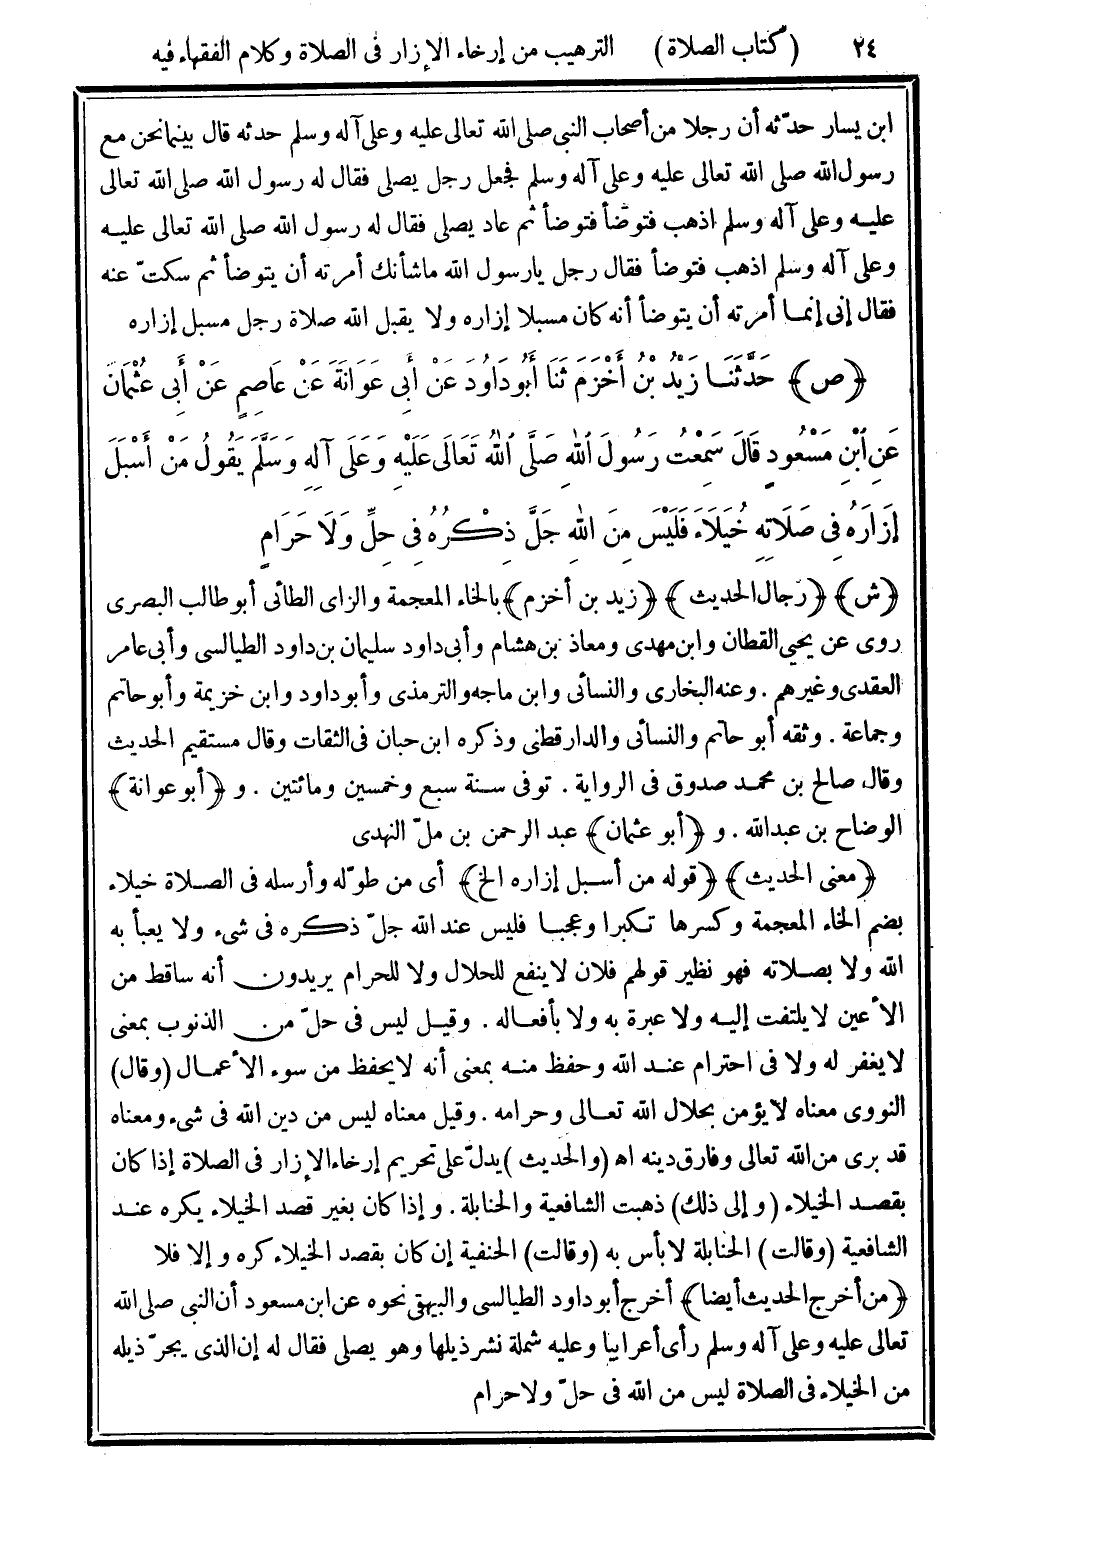 ٢٤ (كتاب الصلاة) الترهيب من إرخاء الإزار فى الصلاة وكلام الفقهاء فيه
ابن يسار حدّثه أن رجلا من أصحاب النبى صلى الله تعالى عليه وعلى آله وسلم حدثه قال بينما نحن مع
رسول الله صلى الله تعالى عليه وعلى آله وسلم فجعل رجل يصلى فقال له رسول الله صلى الله تعالى
عليه وعلى آله وسلم اذهب فتوضّأ فتوضأ ثم عاد يصلى فقال له رسول الله صلى الله تعالى عليه
وعلى آله وسلم اذهب فتوضأ فقال رجل يارسول الله ماشأنك أمرته أن يتوضأ ثم سكتّ عنه
فقال إنى إنما أمرته أن يتوضأ أنه كان مسبلا إزاره ولا يقبل الله صلاة رجل مسبل إزاره
﴿ص﴾ حَدَّثَنَا زَيْدُ بْنُ أَخْزَمَ ثَنَا أَبُو دَاوُدَ عَنْ أَبِى عَوَانَةَ عَنْ عَاصِمٍ عَنْ أَبِى عُثْمَانَ
عَنِ ابْنِ مَسْعُودٍ قَالَ سَمِعْتُ رَسُولَ اللهِ صَلَّى اللهُ تَعَالَى عَلَيْهِ وَعَلَى آلِهِ وَسَلَّمَ يَقُولُ مَنْ أَسْبَلَ
إِزَارَهُ فِى صَلَاتِهِ خُيَلَاءَ فَلَيْسَ مِنَ اللهِ جَلَّ ذِكْرُهُ فِى حِلٍّ وَلَا حَرَامٍ
﴿ش﴾ ﴿رجال الحديث﴾ ﴿زيد بن أخزم﴾ بالخاء المعجمة والزاى الطائى أبو طالب البصرى
روى عن يحيى القطان وابن مهدى ومعاذ بن هشام وأبى داود سليمان بن داود الطيالسى وأبى عامر
العقدى وغيرهم . وعنه البخارى والنسائى وابن ماجه والترمذى وأبو داود وابن خزيمة وأبو حاتم
وجماعة . وثقه أبو حاتم والنسائى والدارقطنى وذكره ابن حبان فى الثقات وقال مستقيم الحديث
وقال صالح بن محمد صدوق فى الرواية . توفى سنة سبع وخمسين ومائتين . و ﴿أبو عوانة﴾
الوضاح بن عبد الله . و ﴿أبو عثمان﴾ عبد الرحمن بن ملّ النهدى
﴿معنى الحديث﴾ ﴿قوله من أسبل إزاره الخ﴾ أى من طوّله وأرسله فى الصلاة خيلاء
بضم الخاء المعجمة وكسرها تكبرا وعجبا فليس عند الله جلّ ذكره فى شىء ولا يعبأ به
الله ولا بصلاته فهو نظير قولهم فلان لاينفع للحلال ولا للحرام يريدون أنه ساقط من
الأعين لا يلتفت إليه ولا عبرة به ولا بأفعاله . وقيل ليس فى حلّ من الذنوب بمعنى
لايغفر له ولا فى احترام عند الله وحفظ منه بمعنى أنه لايحفظ من سوء الأعمال (وقال)
النووى معناه لايؤمن بحلال الله تعالى وحرامه . وقيل معناه ليس من دين الله فى شىء ومعناه
قد برى من الله تعالى وفارق دينه اه (والحديث) يدلّ على تحريم إرخاء الإزار فى الصلاة إذا كان
بقصد الخيلاء (وإلى ذلك) ذهبت الشافعية والحنابلة . وإذا كان بغير قصد الخيلاء يكره عند
الشافعية (وقالت) الحنابلة لا بأس به (وقالت) الحنفية إن كان بقصد الخيلاء كره وإلا فلا
﴿من أخرج الحديث أيضا﴾ أخرج أبو داود الطيالسى والبيهقى نحوه عن ابن مسعود أن النبى صلى الله
تعالى عليه وعلى آله وسلم رأى أعرابيا وعليه شملة نشر ذيلها وهو يصلى فقال له إن الذى يجرّ ذيله
من الخيلاء فى الصلاة ليس من الله فى حلّ ولا حرام